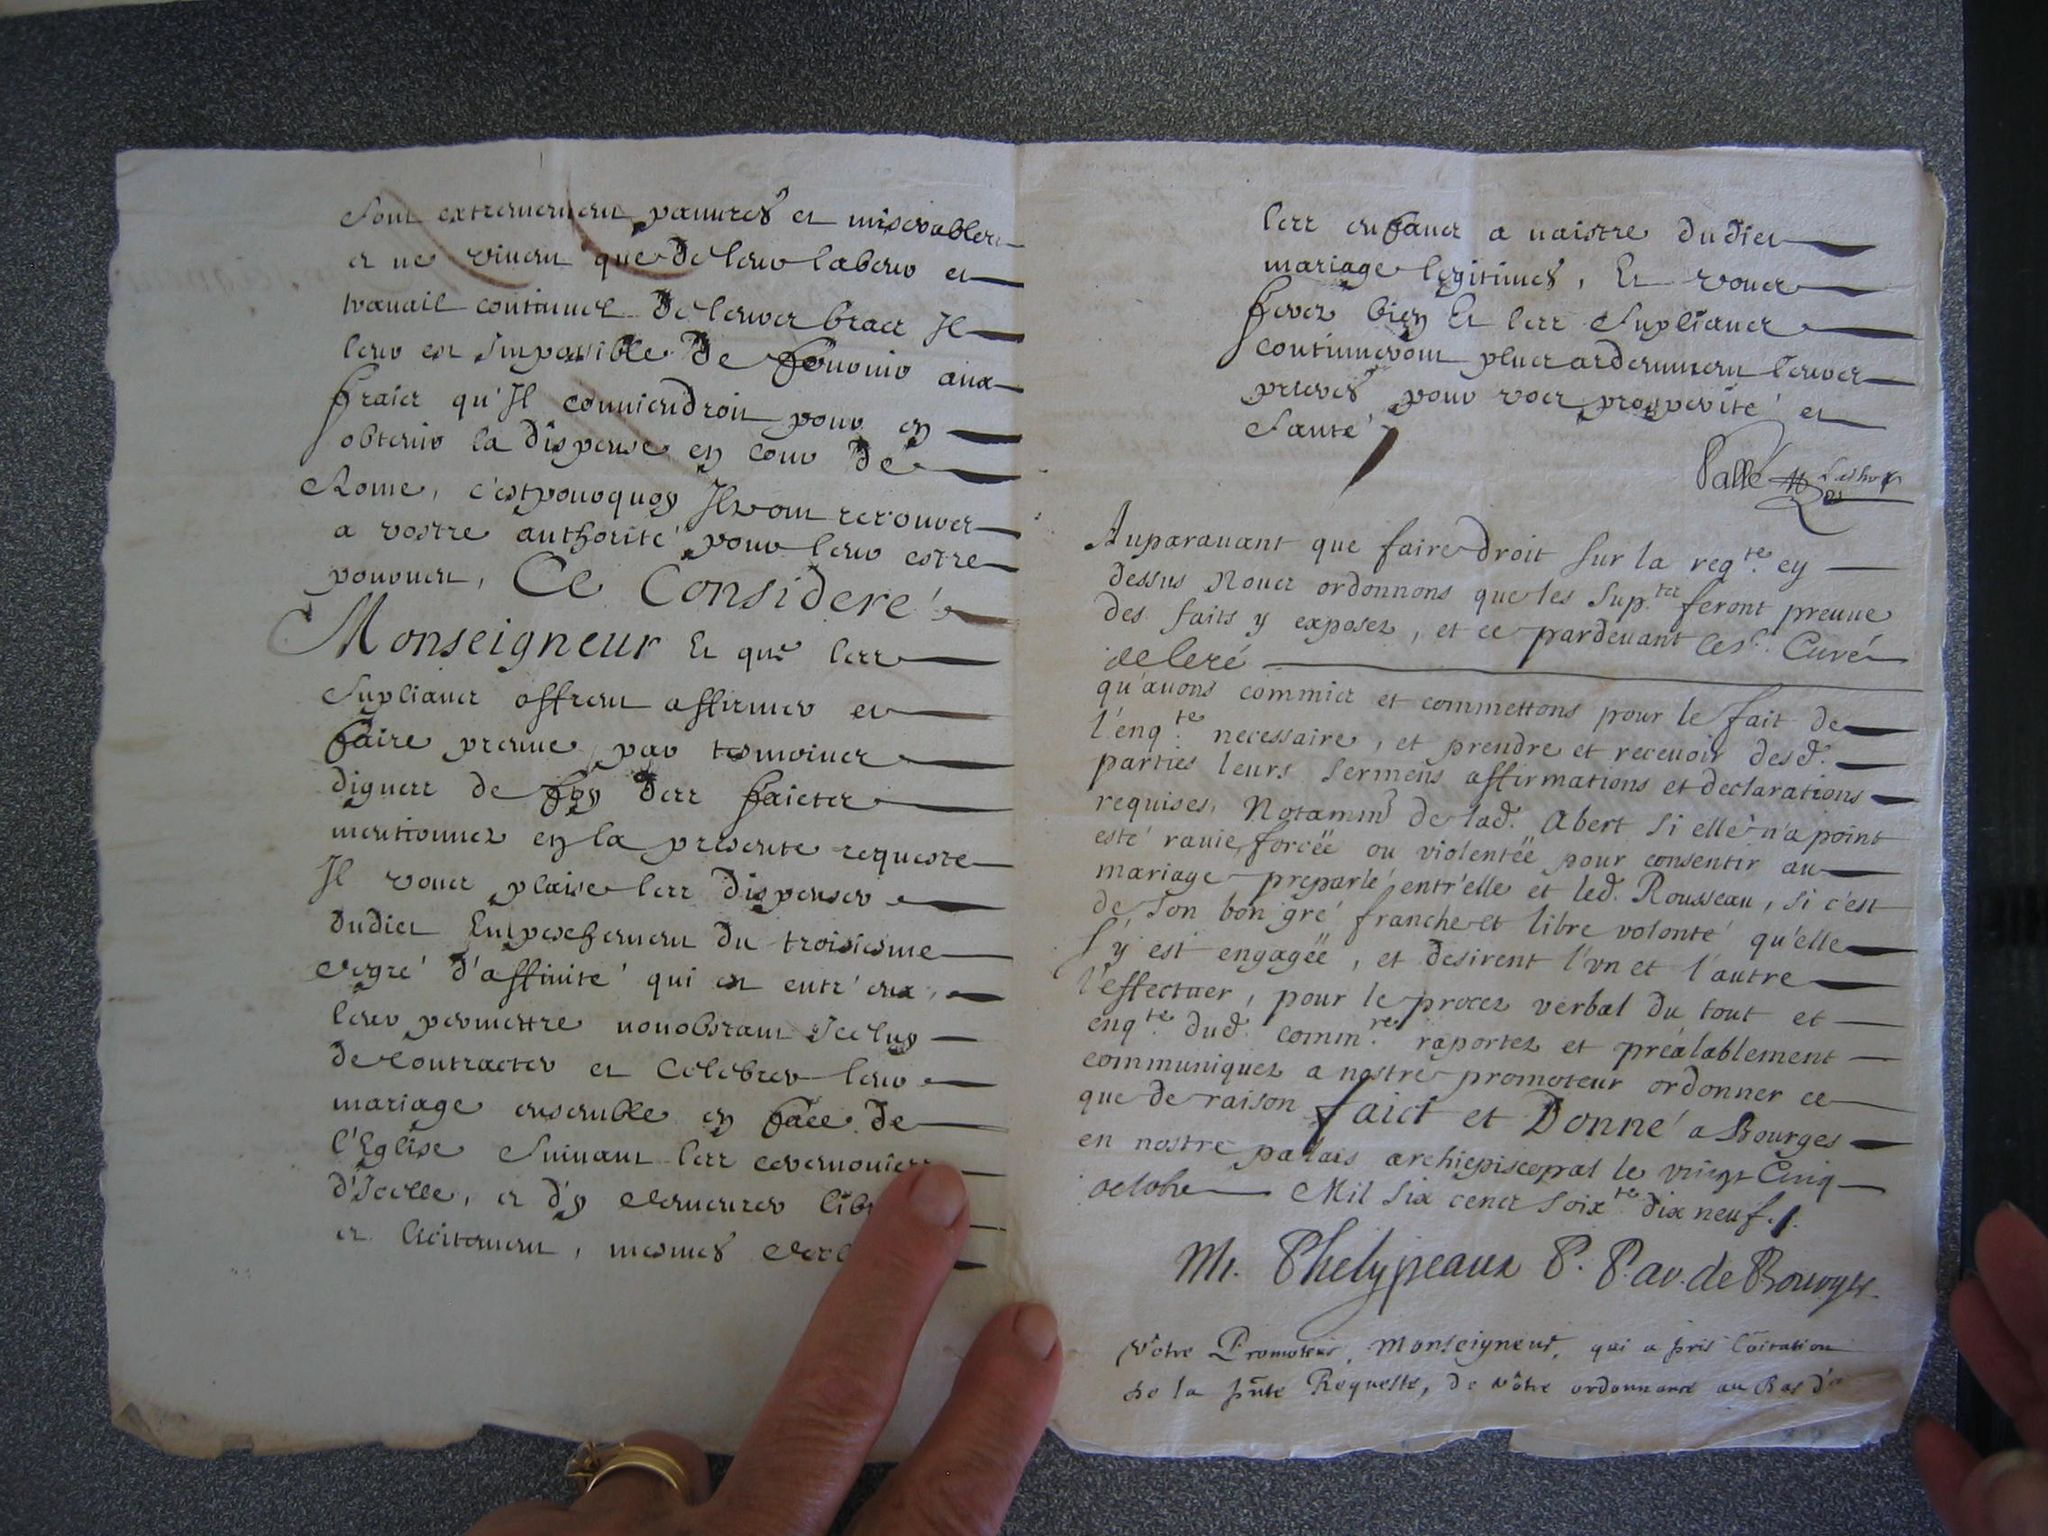 sont extremement pauures et miserables
et ne viuent que de leur labeur et
trauail continuel de leurs bras Il
leur est Impossible de fournir aux
fraics qu'Il conuiendroit pour en
obtenir la dispense en cour de
Rome, c'est pourquoy Ilz ont recours
a vostre authorité pour leur estre
pourueu, Ce Consideré
Monseigneur Et que les
Suplians offrent affirmer et
faire preuue par tesmoins
dignes de foy des faicts
mentionnez en la presente requeste
Il vous plaise les dispenser
dudict Empeschement du troisiesme
degré d'affinité qui est entr'eux,
leur permettre nonobstant Iceluy
de Contracter et Celebrer leur
mariage ensemble en face de
l'Eglise Suiuant les ceremonies
d'Icelle, et d'y demeurer
et licitement, mesmes
les enfans a naistre dudict
mariage legitimes, Et vous
ferez bien Et les Suplians
continueront plus ardemment leurs
prieres pour vos prosperité et
Santé
Pallé
Auparauant que faire droit sur la reqte. cy
dessus Nous ordonnons que les supts feront preuue
des faits y exposez, et ce pardeuant le sr. Curé
de leré
qu'auons commis et commettons pour le fait de
l'enqte. necessaire, et prendre et receuoir desd.
parties leurs sermens affirmations et declarations
requises, Notammt de lad. Abert si elle n'a point
esté rauie, forcée ou violentée pour consentir au
mariage preparlé entr'elle et led. Rousseau, si c'est
de son bon gré franche et libre volonté qu'elle
s'y est engagée, et desirent l'vn et l'autre
l'effectuer, pour le procez verbal du tout et
enqte. dud. commre. raportez et préalablement
communiquez a nostre promoteur ordonner ce
que de raison faict et Donné a Bourges
en nostre palais archiepiscopal le vingt Cinq
octobre Mil six cens soixte. dix neuf.
M. Phelypeaux P. P. ar. de Bourges
Vôtre Promoteur, Monseigneur, qui a pris
de la pñte Requeste, de vôtre ordonnance au Bas